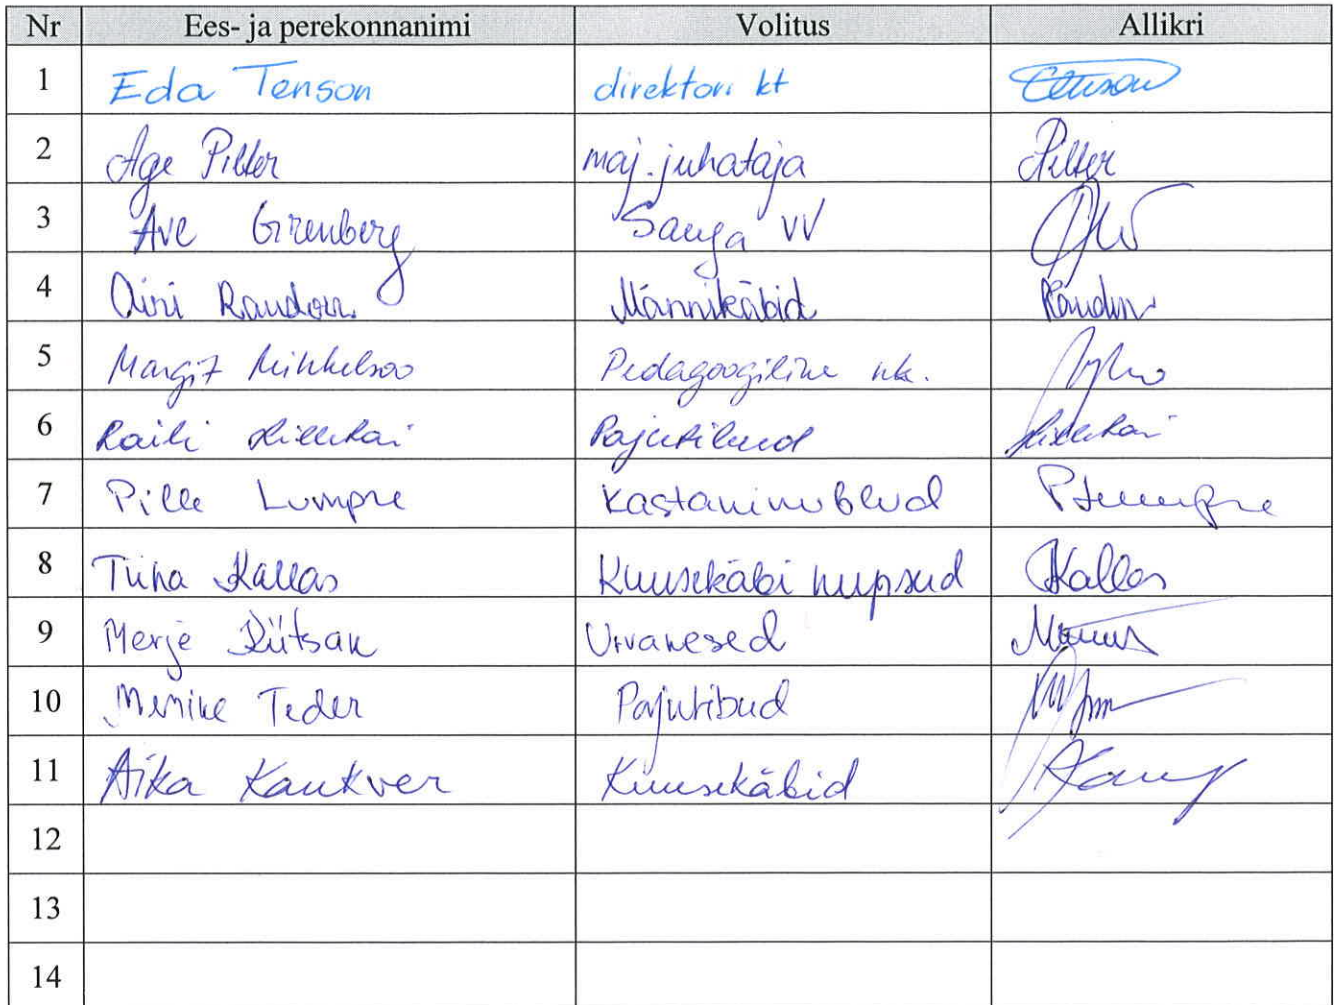 Nr Ees- ja perekonnanimi Volitus Allikri
1 Eda Tenson direktori kt Etenson
2 Age Pilter maj. juhataja Pilter
3 Ave Grenberg Sauga VV
4 Airi Randoru Männikäbid
5 Margit Mihkelsoo Pedagoogiline nk.
6 Raili Pajutibud
7 Pille Lumpre Kastanimublud
8 Tiina Kallas Kuusekäbi nupsud Kallas
9 Merje Riitsak Urvakesed
10 Merike Teder Pajutibud
11 Aika Kaukver Kuusekäbid
12
13
14